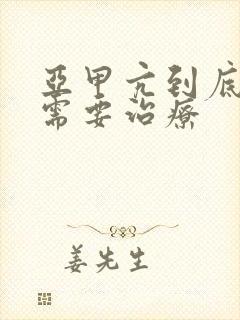 亞甲亢到底
需要治療
姜先生